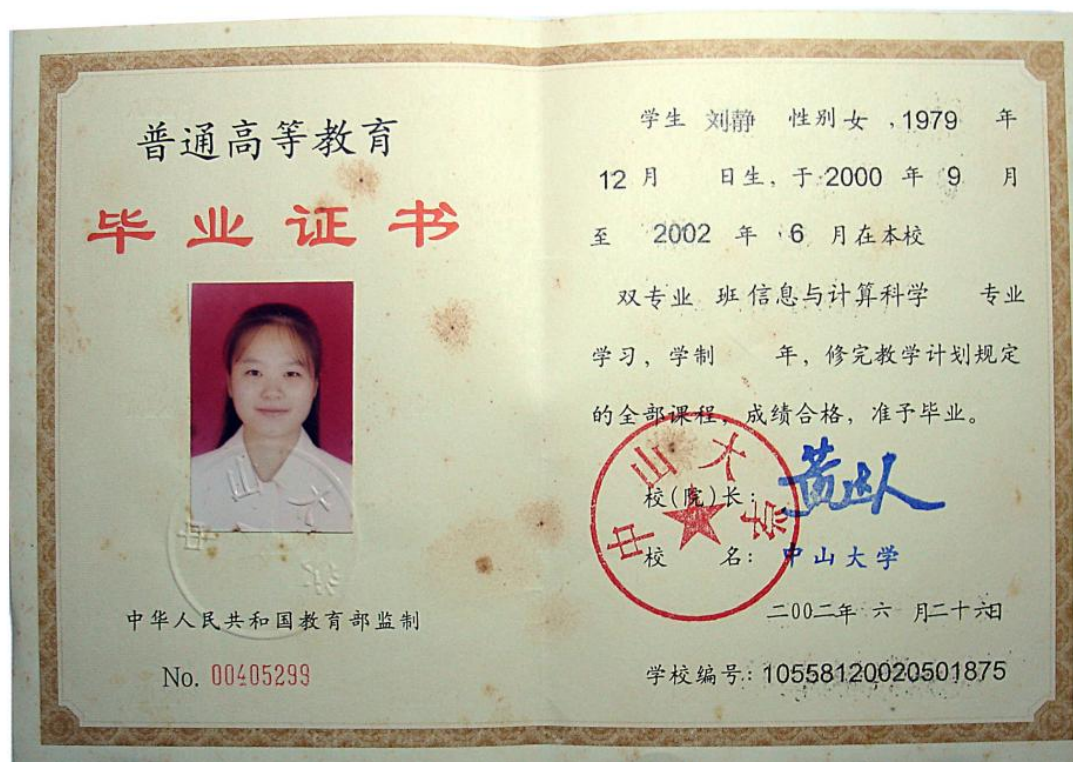 普通高等教育
毕业证书
中华人民共和国教育部监制
No. 00405299
学生 刘静 性别 女 , 1979 年
12 月 日生, 于 2000 年 9 月
至 2002 年 6 月在本校
双专业 班 信息与计算科学 专业
学习, 学制 年, 修完教学计划规定
的全部课程, 成绩合格, 准予毕业。
校(院)长: 黄达人
中山大学
校 名: 中山大学
二00二年 六 月二十六日
学校编号: 10558120020501875